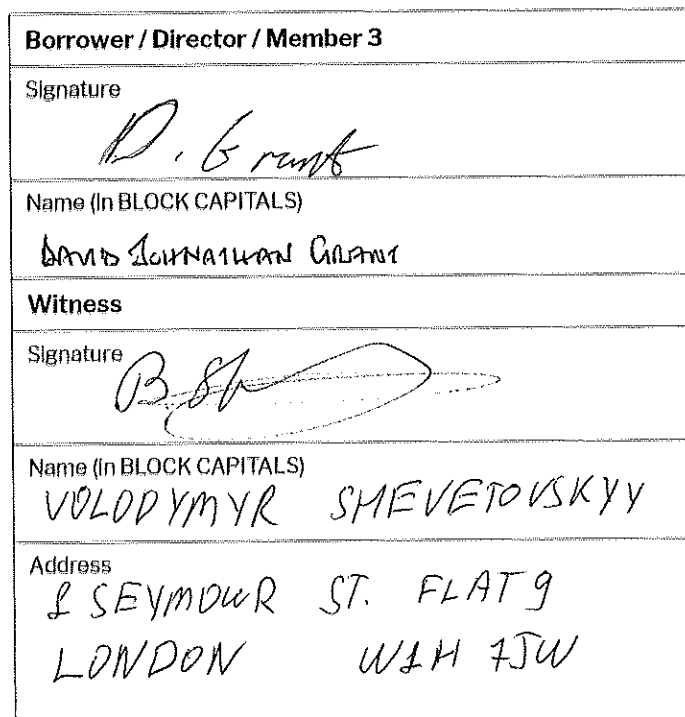 Borrower / Director / Member 3
Signature
D. Grant
Name (In BLOCK CAPITALS)
DAVID JOHNATHAN GRANT
Witness
Signature
Name (in BLOCK CAPITALS)
VOLODYMYR SHEVETOVSKYY
Address
1 SEYMOUR ST. FLAT 9
LONDON W1H 7JW